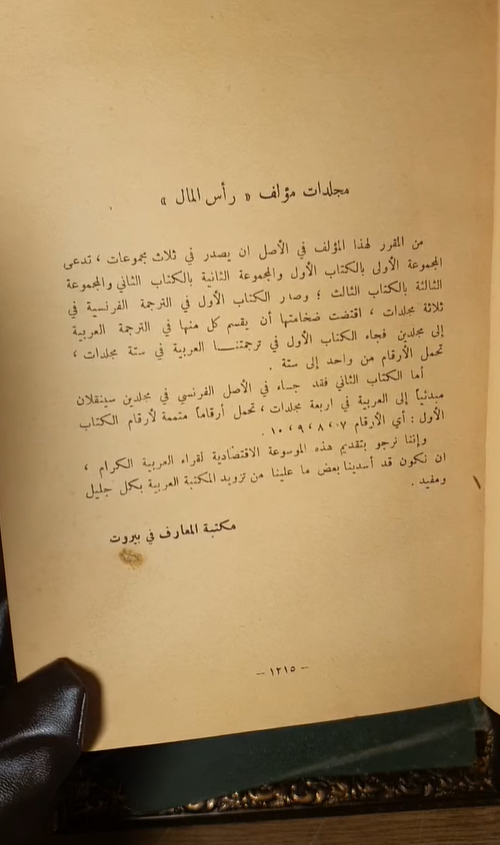 مجلدات مؤلف « رأس المال »
من المقرر لهذا المؤلف في الأصل ان يصدر في ثلاث مجموعات ، تدعى
المجموعة الأولى بالكتاب الأول والمجموعة الثانية بالكتاب الثاني والمجموعة
الثالثة بالكتاب الثالث ؛ وصار الكتاب الأول في الترجمة الفرنسية في
ثلاثة مجلدات ، اقتضت ضخامتها أن يقسم كل منها في الترجمة العربية
إلى مجلدين فجاء الكتاب الأول في ترجمتنـــا العربية في ستة مجلدات ،
تحمل الأرقام من واحد إلى ستة .
أما الكتاب الثاني فقد جـاء في الأصل الفرنسي في مجلدين سينقلان
مبدئياً إلى العربية في اربعة مجلدات ، تحمل أرقاماً متممة لأرقام الكتاب
الأول : أي الأرقام ٧ ، ٨ ، ٩ ، ١٠ .
وإننا نرجو بتقديم هذه الموسوعة الاقتصادية لقراء العربية الكرام ،
ان نكون قد أسدينا بعض ما علينا من تزويد المكتبة العربية بكل جليل
ومفيد .
مكتبة المعارف في بيروت
– ١٢١٥ –